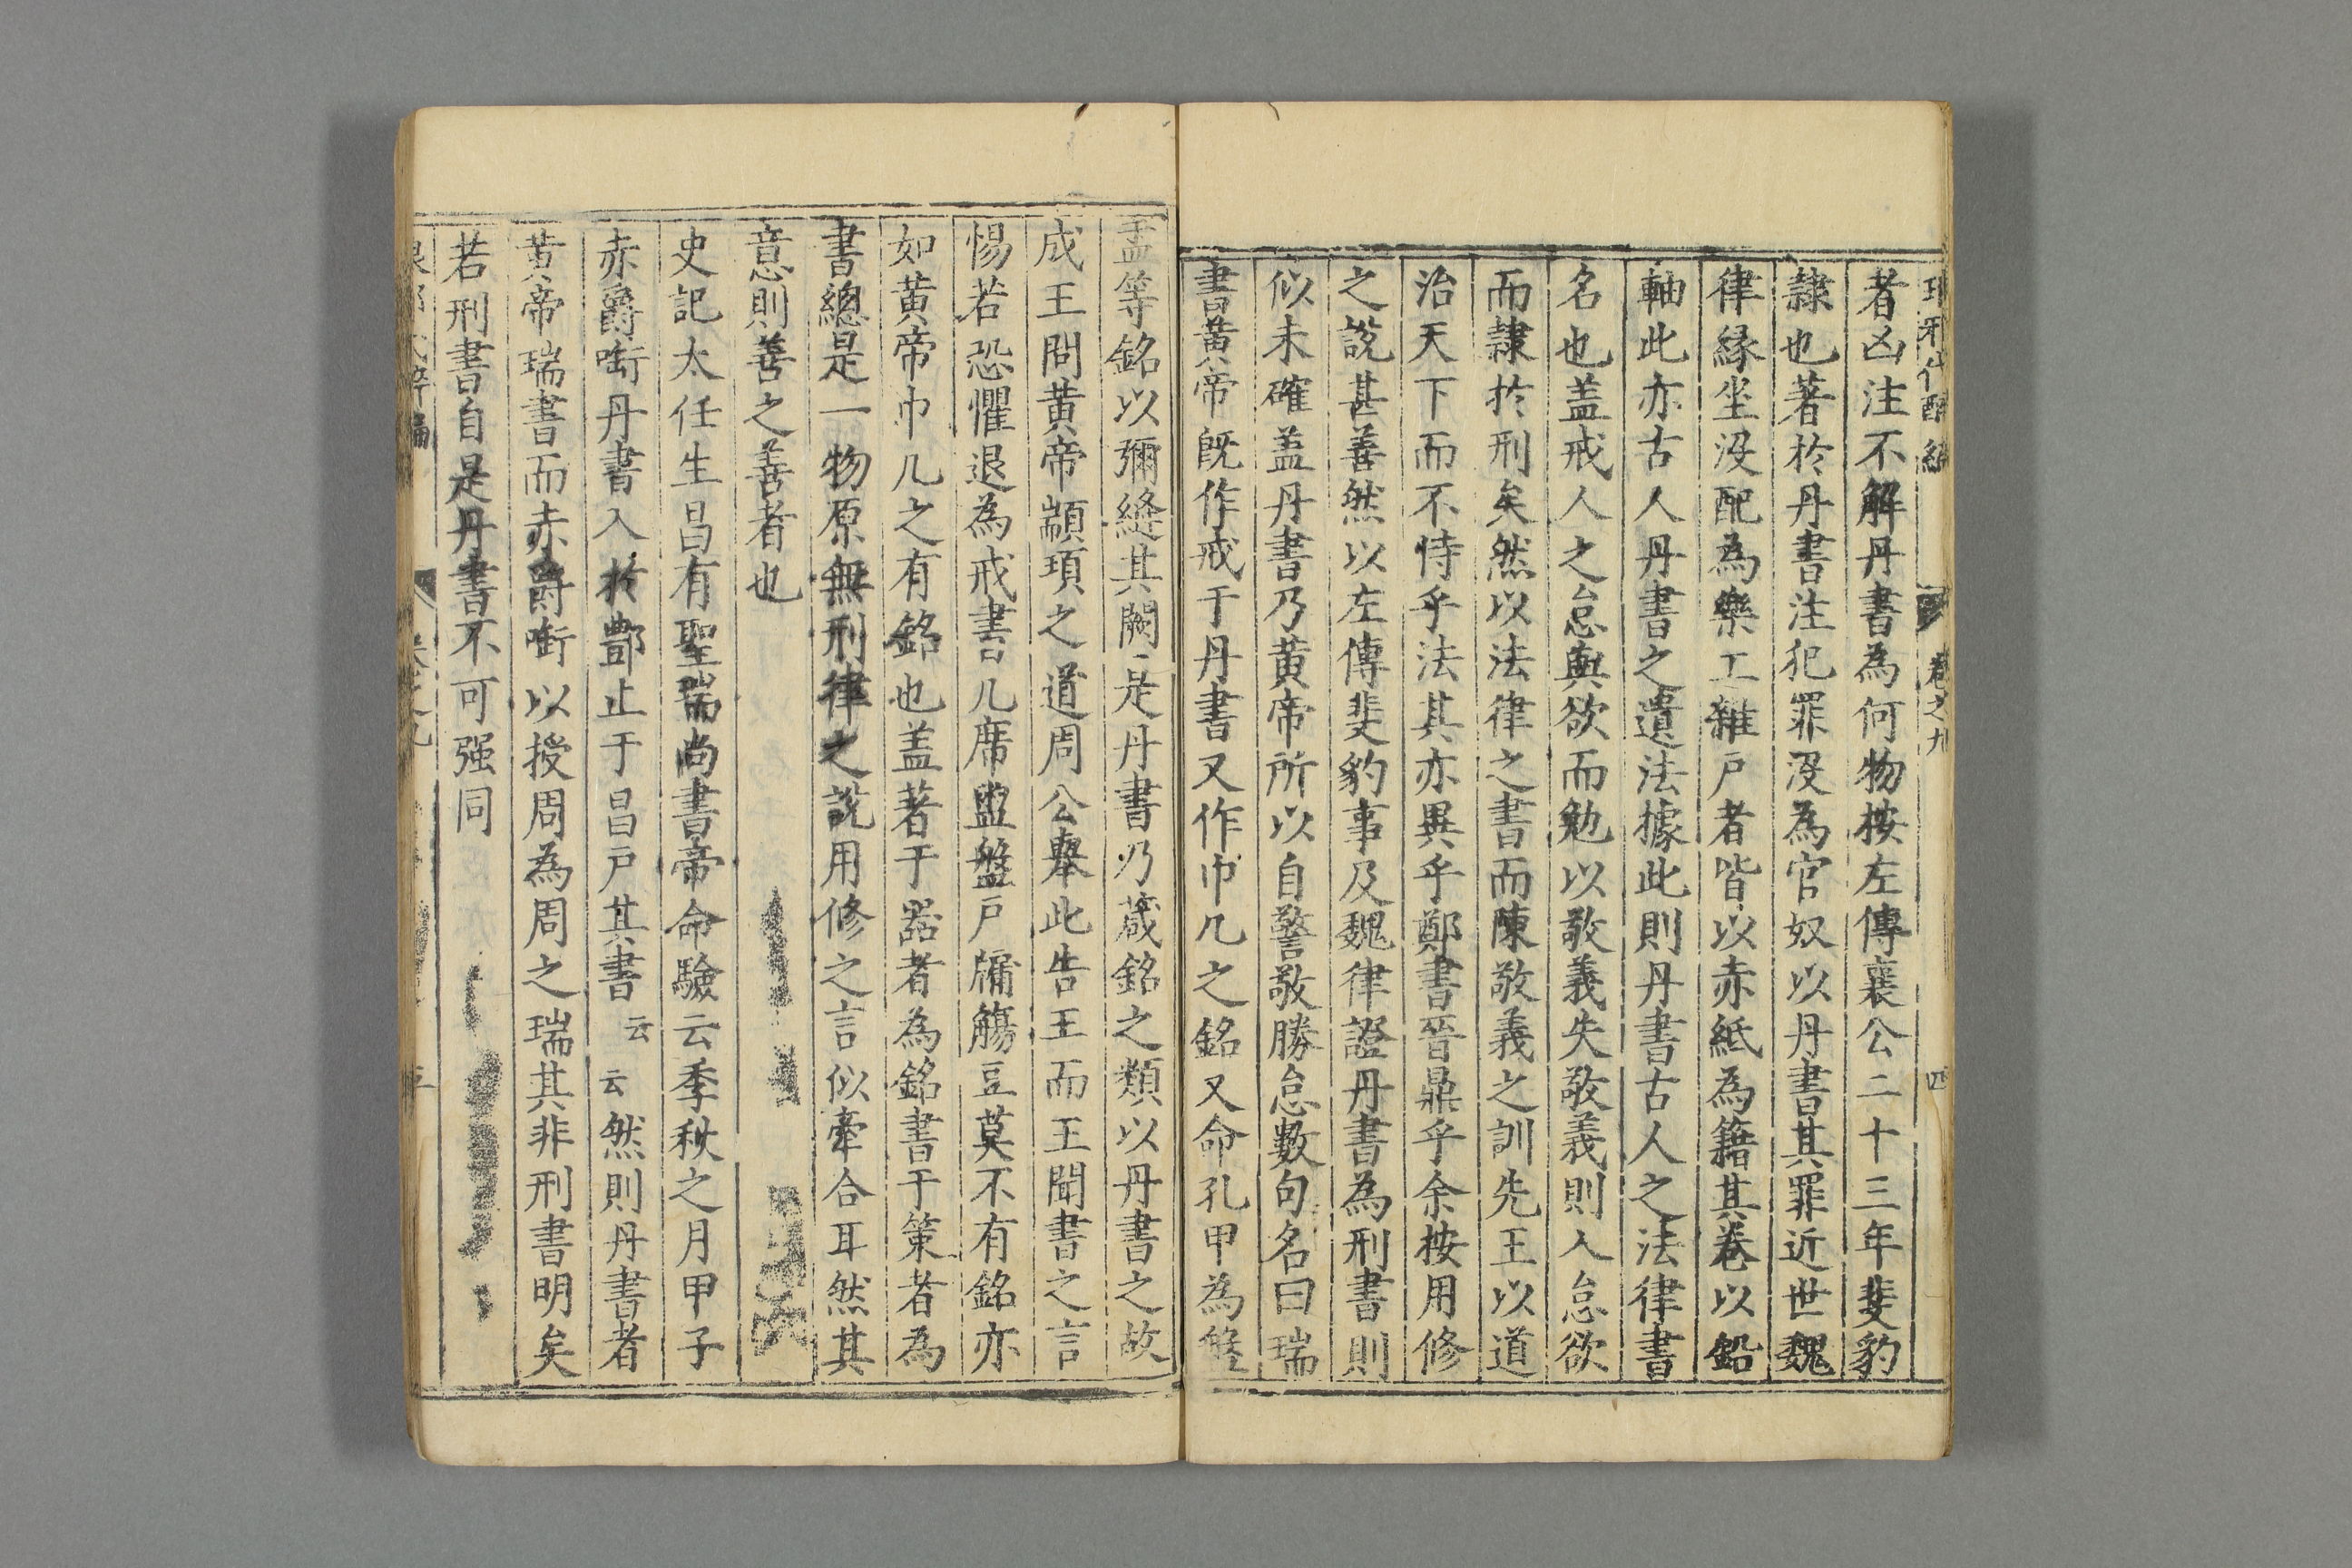 琅邪代醉編 卷之九 四
者凶注不解丹書為何物按左傳襄公二十三年斐豹
隸也著於丹書注犯罪沒為官奴以丹書其罪近世魏
律緣坐沒配為樂工雜戶者皆以赤紙為籍其卷以鉛
軸此亦古人丹書之遺法據此則丹書古人之法律書
名也盖戒人之怠與欲而勉以敬義失敬義則入怠欲
而隸於刑矣然以法律之書而陳敬義之訓先王以道
治天下而不恃乎法其亦異乎鄭書晉鼎乎余按用修
之說甚善然以左傳斐豹事及魏律證丹書為刑書則
似未確盖丹書乃黃帝所以自警敬勝怠數句名曰瑞
書黃帝旣作戒于丹書又作巾几之銘又命孔甲為盤
盂等銘以彌縫其闕是丹書乃箴銘之類以丹書之故
成王問黃帝顓頊之道周公舉此告王而王聞書之言
惕若恐懼退為戒書几席盥盤戶牖觴豆莫不有銘亦
如黃帝巾几之有銘也盖著于器者為銘書于策者為
書總是一物原無刑律之說用修之言似牽合耳然其
意則善之善者也
史記太任生昌有聖瑞尚書帝命驗云季秋之月甲子
赤爵啣丹書入於酆止于昌戶其書云云然則丹書者
黃帝瑞書而赤爵啣以授周為周之瑞其非刑書明矣
若刑書自是丹書不可强同